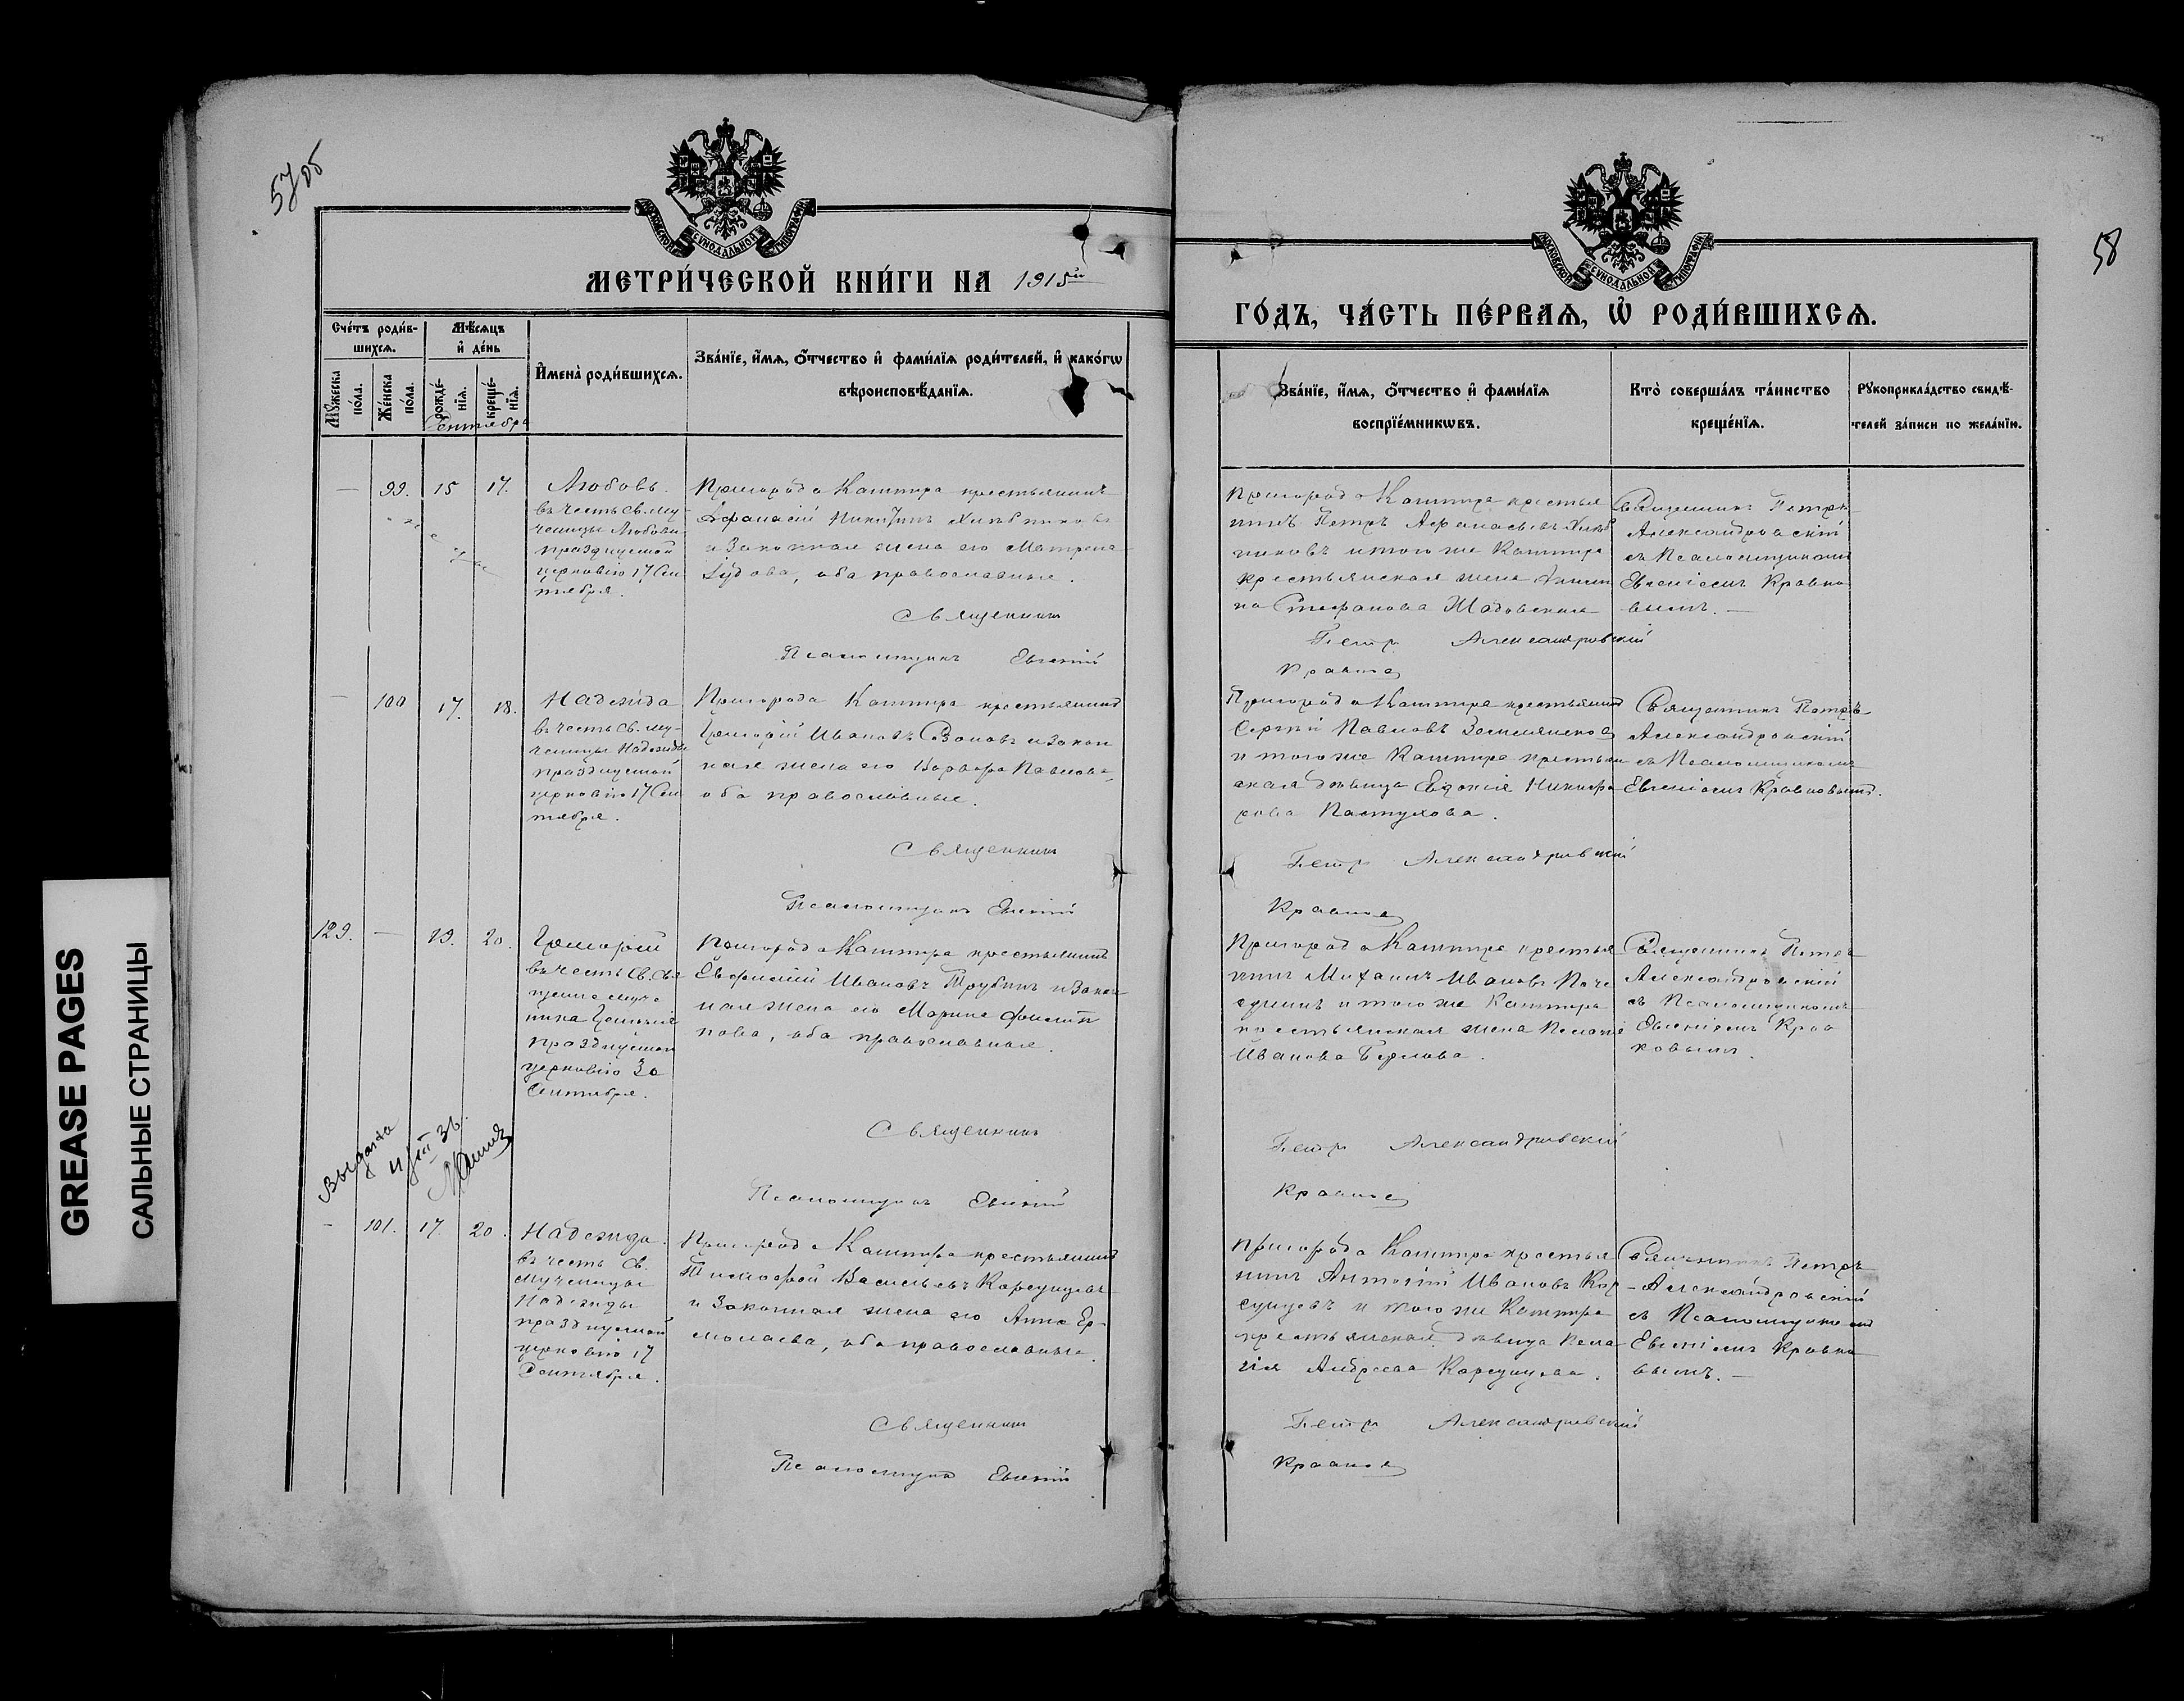 57 об
58
МОСКОВСКОЙ СУНОДАЛЬНОЙ ТИПОГРАФІИ
МЕТРИ́ЧЕСКОЙ КНИ́ГИ НА 1915й
МОСКОВСКОЙ СУНОДАЛЬНОЙ ТИПОГРАФІИ
ГО́ДЪ, ЧА́СТЬ ПЕ́РВАѦ, Ѡ҆ РОДИ́ВШИХСѦ.
Сче́тъ роди́в-
шихсѧ.
Мѣ́сѧцъ
и҆ де́нь
Мꙋ́жеска по́ла.
Же́нска по́ла.
рожде́-
нїѧ.
креще́-
нїѧ.
Сентябрь
И҆мена̀ роди́вшихсѧ.
Зва́нїе, и҆́мѧ, ѻ҆́тчество и҆ фами́лїѧ роди́телей, и҆ како́гѡ
вѣроисповѣ́данїѧ.
Зва́нїе, и҆́мѧ, ѻ҆́тчество и҆ фами́лїѧ
воспрїе́мникѡвъ.
Кто̀ соверша́лъ та́инство
креще́нїѧ.
Рꙋкоприкла́дство свидѣ́-
телей за́писи по жела́нїю.
— 99. 15 17. Любовь.
въ честь Св. му-
ченицы Любови
празднуемой
церковію 17 Сен
тября.
Пригорода Каштира крестьянинъ
Афанасій Никитинъ
и Законная жена его Матрена
оба православные.
Священникъ
Псаломщикъ Евгеній
Пригорода Каштира крестья
нинъ Петръ Афанасьевъ
и того же Каштира
крестьянская жена
на Стефанова
Петръ Александровскій
Священникъ Петръ
Александровскій
съ Псаломщикомъ
Евгеніемъ Кравко
вымъ. —
— 100 17. 18. Надежда
въ честь Св. му-
ченицы Надежды
празднуемой
церковію 17 Сен
тября.
Пригорода Каштира крестьянинъ
Григорій Ивановъ и закон
ная жена его Варвара Павлова
оба православные.
Священникъ
Псаломщикъ Евгеній
Пригорода Каштира крестьянинъ
Сергій Павловъ
и того же Каштира крестьян
ская дѣвица Евдокія Никифо
рова Пастухова.
Петръ Александровскій
Священникъ Петръ
Александровскій
съ Псаломщикомъ
Евгеніемъ Кравковымъ.
129. — 19. 20. Григорій
въ честь Св. Свя
щенномуче
ника Григорія
празднуемаго
церковію 30
Сентября.
Пригорода Каштира крестьянинъ
Евфимій Ивановъ Трубинъ и закон
ная жена его Марина Филип
пова, оба православные.
Священникъ
Псаломщикъ Евгеній
Пригорода Каштира крестья
нинъ Михаилъ Ивановъ
и того же Каштира
крестьянская жена Пелагія
Иванова
Петръ Александровскій
Священникъ Петръ
Александровскій
съ Псаломщикомъ
Евгеніемъ Крав
ковымъ.
Выдана
— 101. 17. 20. Надежда.
въ честь Св.
мученицы
Надежды
празднуемой
церковію 17
Сентября.
Пригорода Каштира крестьянинъ
Тимофей Васильевъ Карсунцевъ
и Законная жена его Анна Ер-
молаева, оба православные.
Священникъ
Псаломщикъ Евгеній
Пригорода Каштира крестья
нинъ Антоній Ивановъ Кар
сунцевъ и того же Каштира
крестьянская дѣвица Пела
гія Андреева Карсунцева.
Петръ Александровскій
Священникъ Петръ
Александровскій
съ Псаломщикомъ
Евгеніемъ Кравко
вымъ. —
GREASE PAGES
САЛЬНЫЕ СТРАНИЦЫ